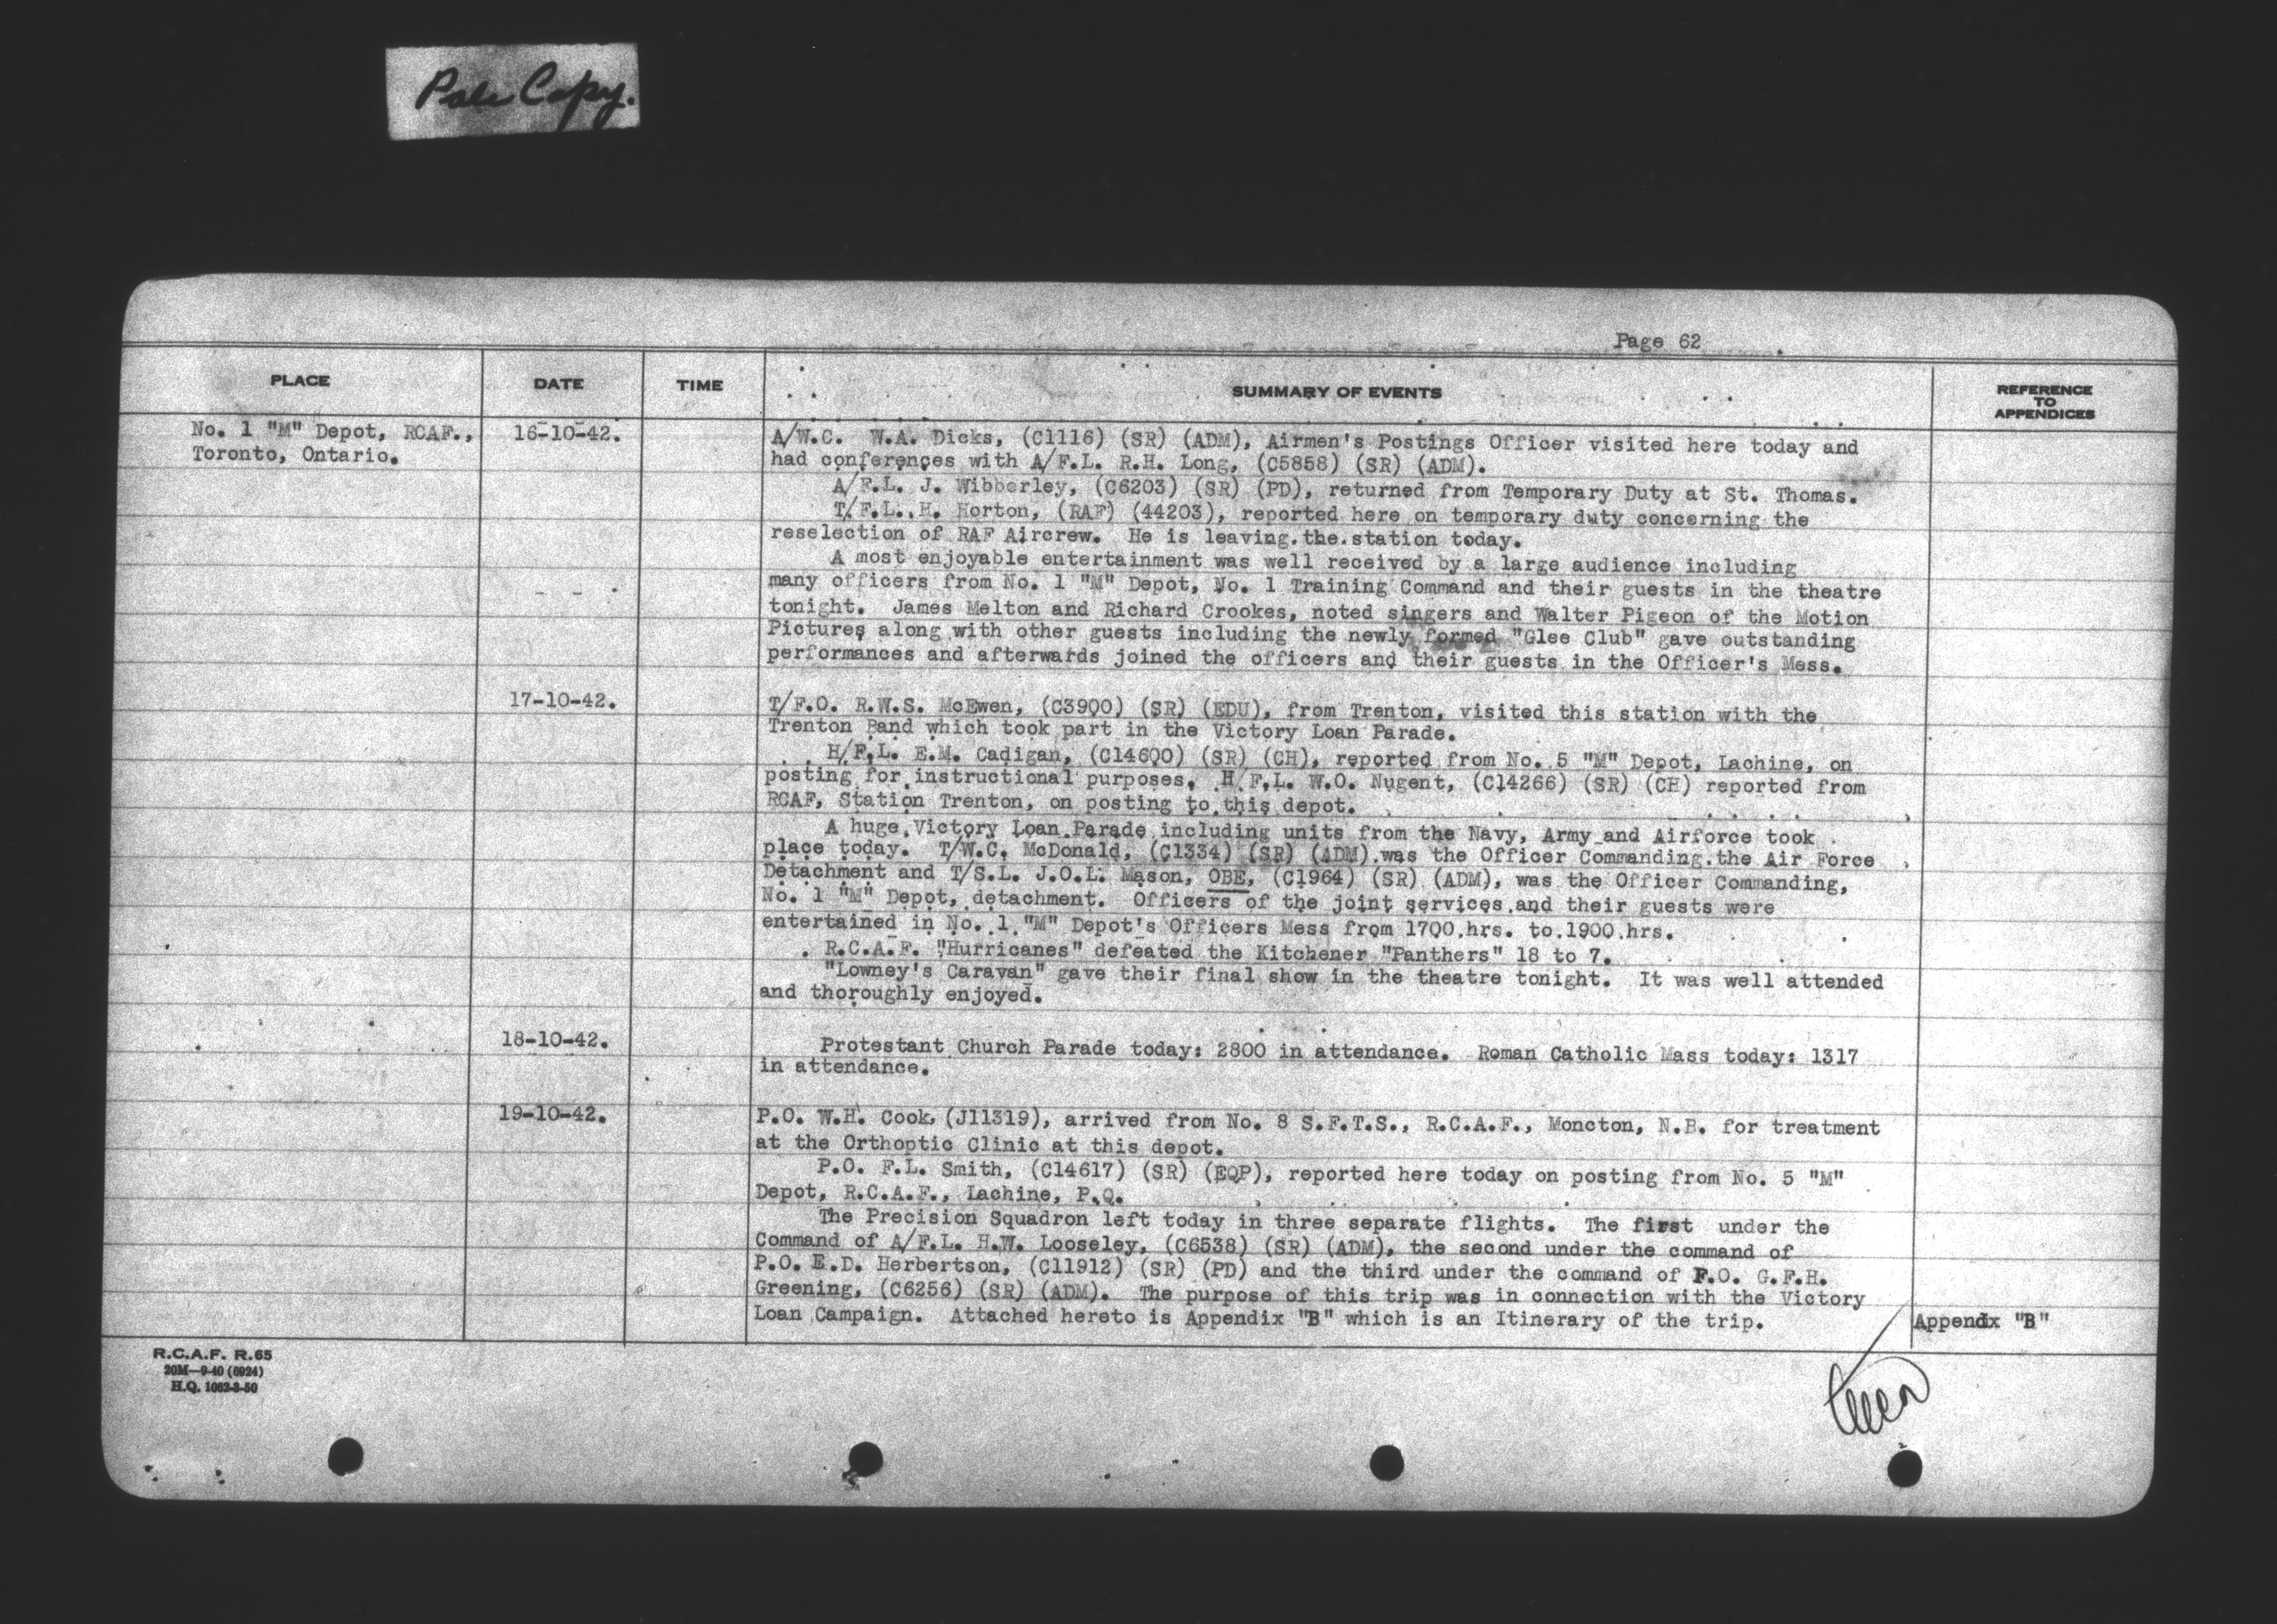 Pale Copy.
Page 62
PLACE DATE TIME SUMMARY OF EVENTS REFERENCE TO APPENDICES
No. 1 "M" Depot, RCAF., 16-10-42. A/W.C. W.A. Dicks, (C1116) (SR) (ADM), Airmen's Postings Officer visited here today and
Toronto, Ontario. had conferences with A/F.L. R.H. Long, (C5858) (SR) (ADM).
A/F.L. J. Wibberley, (C6203) (SR) (PD), returned from Temporary Duty at St. Thomas.
T/F.L. H. Horton, (RAF) (44203), reported here on temporary duty concerning the
reselection of RAF Aircrew. He is leaving the station today.
A most enjoyable entertainment was well received by a large audience including
many officers from No. 1 "M" Depot, No. 1 Training Command and their guests in the theatre
tonight. James Melton and Richard Crookes, noted singers and Walter Pigeon of the Motion
Pictures along with other guests including the newly formed "Glee Club" gave outstanding
performances and afterwards joined the officers and their guests in the Officer's Mess.
17-10-42. T/F.O. R.W.S. McEwen, (C3900) (SR) (EDU), from Trenton, visited this station with the
Trenton Band which took part in the Victory Loan Parade.
H/F.L. E.M. Cadigan, (C14600) (SR) (CH), reported from No. 5 "M" Depot, Lachine, on
posting for instructional purposes. H/F.L. W.O. Nugent, (C14266) (SR) (CH) reported from
RCAF, Station Trenton, on posting to this depot.
A huge Victory Loan Parade including units from the Navy, Army and Airforce took
place today. T/W.C. McDonald, (C1334) (SR) (ADM) was the Officer Commanding the Air Force
Detachment and T/S.L. J.O.L. Mason, OBE, (C1964) (SR) (ADM), was the Officer Commanding,
No. 1 "M" Depot, detachment. Officers of the joint services and their guests were
entertained in No. 1 "M" Depot's Officers Mess from 1700 hrs. to 1900 hrs.
R.C.A.F. "Hurricanes" defeated the Kitchener "Panthers" 18 to 7.
"Lowney's Caravan" gave their final show in the theatre tonight. It was well attended
and thoroughly enjoyed.
18-10-42. Protestant Church Parade today: 2800 in attendance. Roman Catholic Mass today: 1317
in attendance.
19-10-42. P.O. W.H. Cook, (J11319), arrived from No. 8 S.F.T.S., R.C.A.F., Moncton, N.B. for treatment
at the Orthoptic Clinic at this depot.
P.O. F.L. Smith, (C14617) (SR) (EQP), reported here today on posting from No. 5 "M"
Depot, R.C.A.F., Lachine, P.Q.
The Precision Squadron left today in three separate flights. The first under the
Command of A/F.L. H.W. Looseley, (C6538) (SR) (ADM), the second under the command of
P.O. E.D. Herbertson, (C11912) (SR) (PD) and the third under the command of F.O. G.F.H.
Greening, (C6256) (SR) (ADM). The purpose of this trip was in connection with the Victory
Loan Campaign. Attached hereto is Appendix "B" which is an Itinerary of the trip. Appendix "B"
R.C.A.F. R.65
20M—9-40 (6924)
H.Q. 1062-3-50